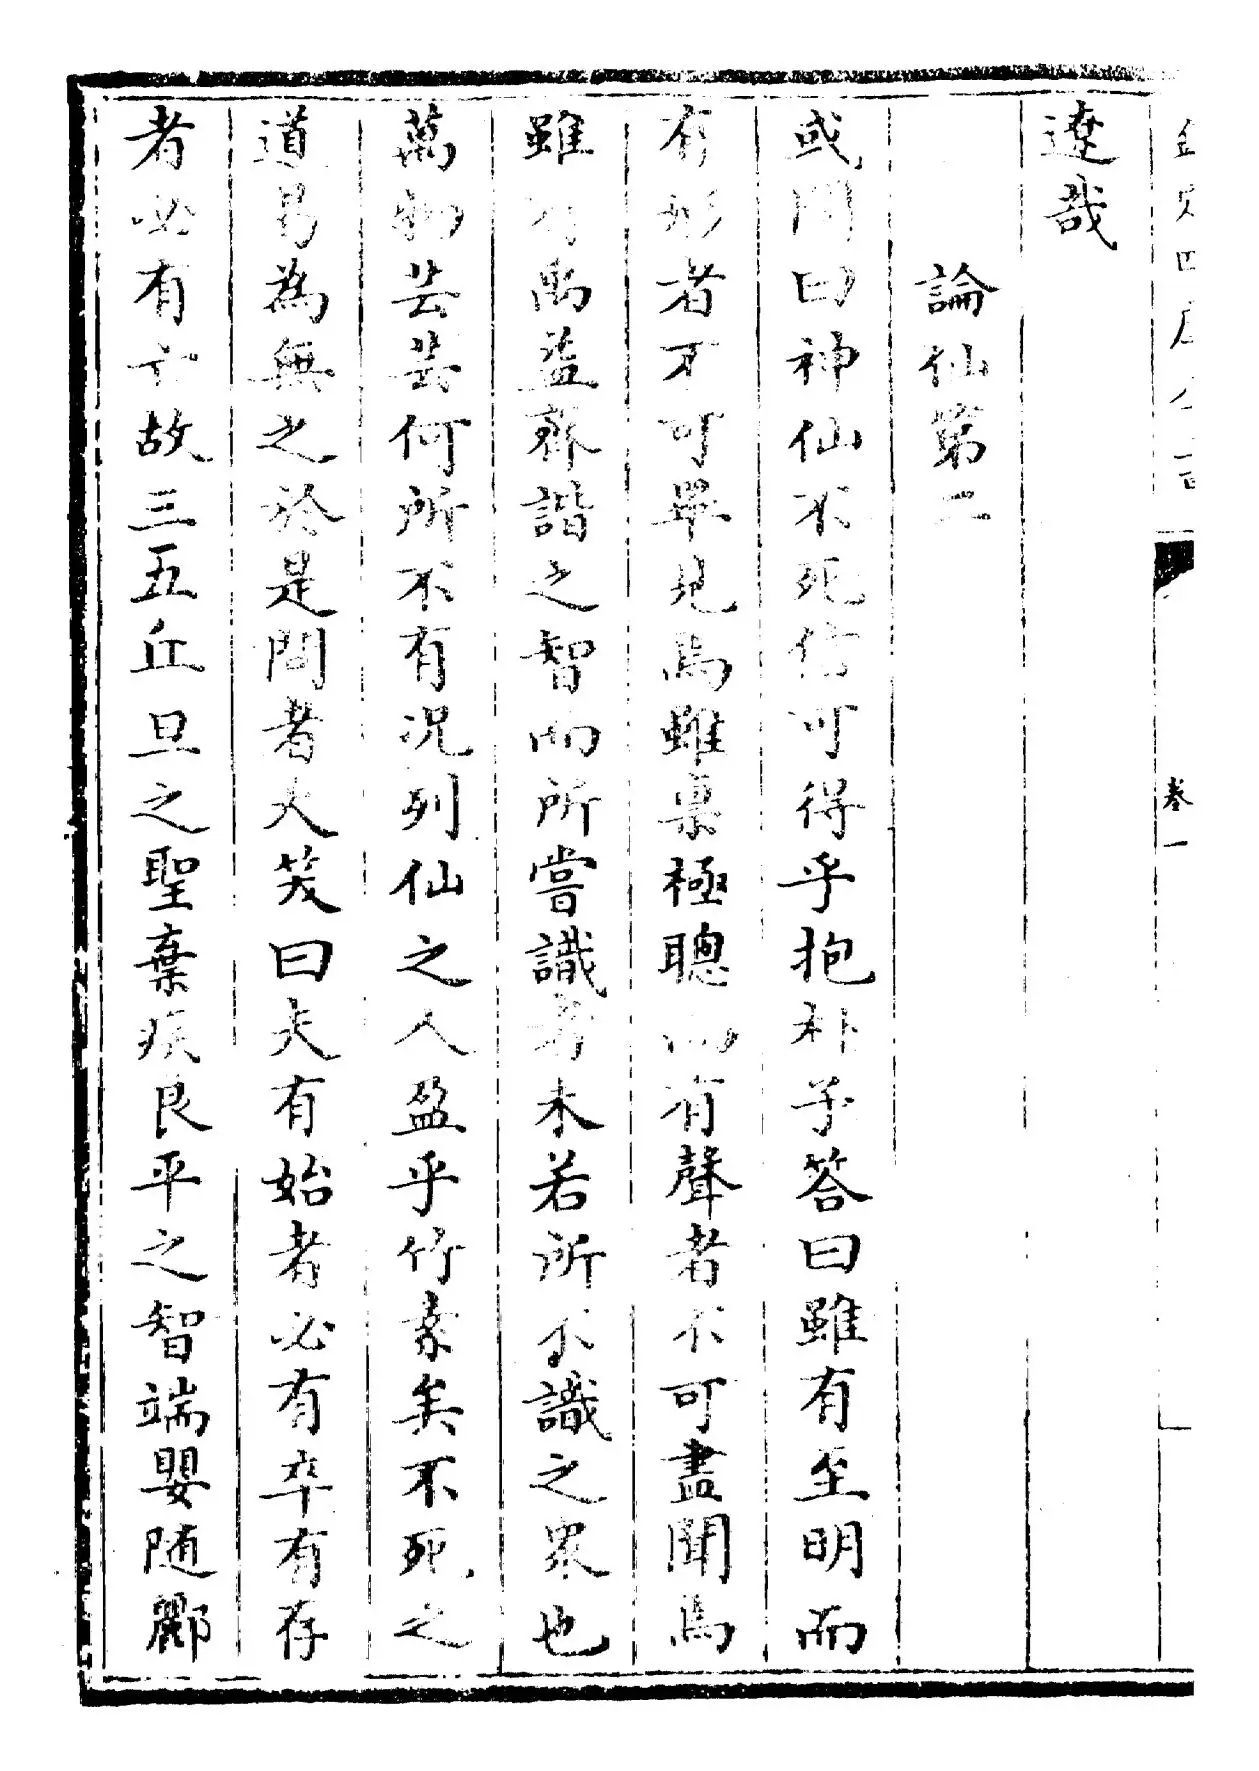 欽定四庫全書
卷一
遼哉
論仙第二
或問曰神仙不死信可得乎抱朴子答曰雖有至明而
有形者不可畢見焉雖稟極聰而有聲者不可盡聞焉
雖有禹益齊諧之智而所嘗識者未若所不識之衆也
萬物芸芸何所不有况列仙之人盈乎竹素矣不死之
道曷為無之於是問者大笑曰夫有始者必有卒有存
者必有亡故三五丘旦之聖棄疾良平之智端嬰随酈